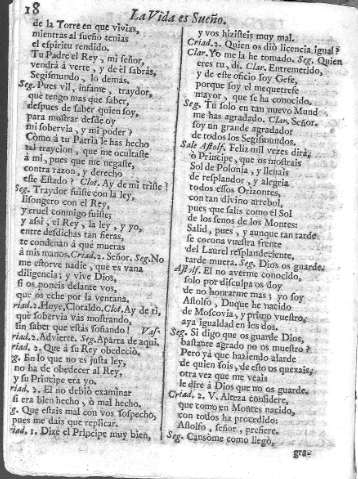 18
La Vida es Sueño.
de la Torre en que vivias,
mientras al sueño tenias
el espiritu rendido.
Tu Padre el Rey, mi señor,
vendrá á verte, y de él sabrás,
Segismundo, lo demás.
Seg. Pues vil, infame, traydor,
qué tengo mas que saber,
despues de saber quien soy,
para mostrar desde oy
mi sobervia, y mi poder?
Cómo á tu Patria le has hecho
tal traycion, que me ocultaste
á mi, pues que me negaste,
contra razon, y derecho
este Estado? Clot. Ay de mi triste!
Seg. Traydor fuiste con la ley,
lisongero con el Rey,
y cruel conmigo fuiste;
y assi, el Rey, la ley, y yo,
entre desdichas tan fieras,
te condenan á que mueras
á mis manos. Criad. 2. Señor. Seg. No
me estorve nadie, que es vana
diligencia; y vive Dios,
si os poneis delante vos,
que os eche por la ventana.
riad. 2. Huye, Clotaldo. Clot. Ay de ti,
que sobervia vas mostrando,
sin saber que estás soñando! Vas.
riad. 2. Advierte. Seg. Aparta de aqui.
riad. 2. Que á su Rey obedeció.
g. En lo que no es justa ley,
no ha de obedecer al Rey,
y su Principe era yo.
riad. 2. El no debió examinar
si era bien hecho, ò mal hecho.
g. Que estais mal con vos sospecho,
pues me dais que replicar.
riad. 1. Dice el Principe muy bien,
y vos hizisteis muy mal.
Criad. 2. Quien os dió licencia igual?
Clar. Yo me la he tomado. Seg. Quien
eres tu, di. Clar. Entremetido,
y de este oficio soy Gefe,
porque soy el mequetrefe
mayor, que se ha conocido.
Seg. Tu solo en tan nuevo Mund
me has agradado. Clar. Señor,
soy un grande agradador
de todos los Segismundos.
Sale Astolf. Feliz mil vezes dirá,
ò Principe, que os mostrais
Sol de Polonia, y llenais
de resplandor, y alegria
todos essos Orizontes,
con tan divino arrebol,
pues que salis como el Sol
de los senos de los Montes:
Salid, pues, y aunque tan tarde
se corona vuestra frente
del Laurel resplandeciente,
tarde muera. Seg. Dios os guarde.
Astolf. El no averme conocido,
solo por disculpa os doy
de no honrarme mas; yo soy
Astolfo, Duque he nacido
de Moscovia, y primo vuestro,
aya igualdad en los dos.
Seg. Si digo que os guarde Dios,
bastante agrado no os muestro?
Pero yá que haziendo alarde
de quien sois, de esto os quexais,
otra vez que me veais
le diré á Dios que no os guarde.
Criad. 2. V. Alteza considere,
que como en Montes nacido,
con todos ha procedido:
Astolfo, señor, prefiere.
Seg. Cansóme como llegò,
gra-